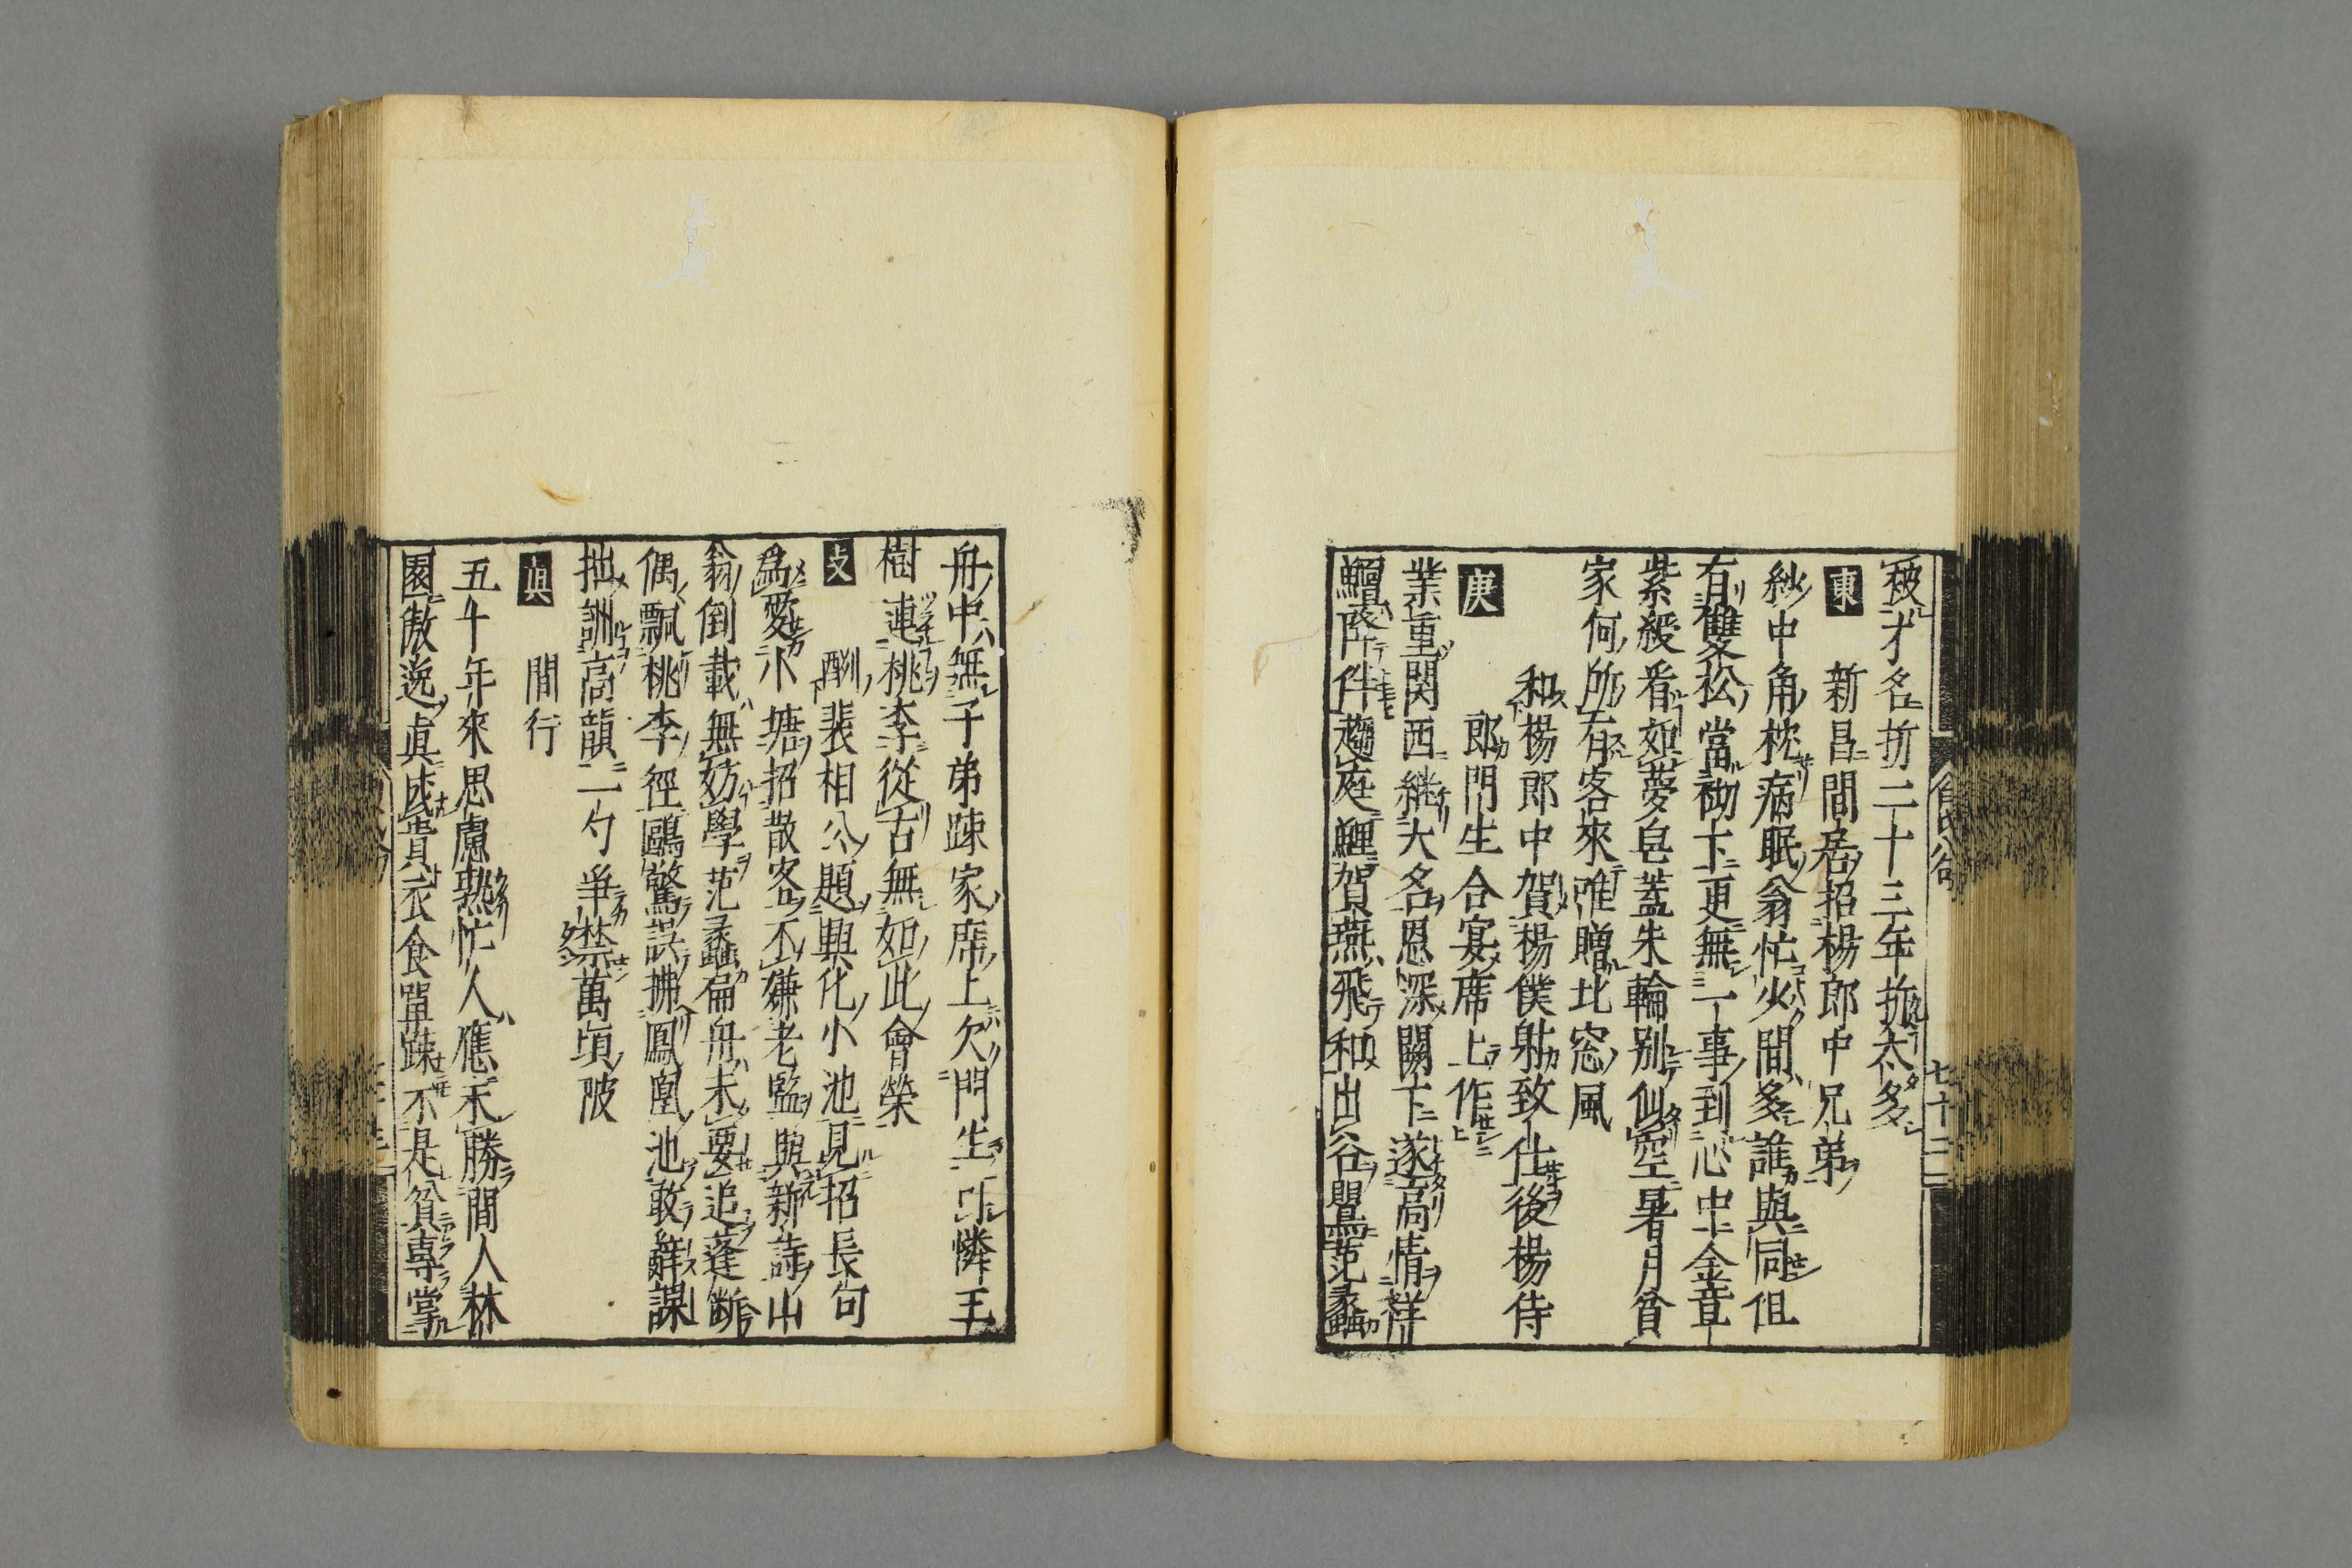 被才名折二十三年折太多
東 新昌間居招楊郎中兄弟
紗中角枕病眠翁忙少間多誰與同但
有雙松當砌下更無一事到心中金章
紫綬看如夢皂蓋朱輪別似空暑月貧
家何所有客來唯贈北窓風
和楊郎中賀楊僕射致仕後楊侍
庚 郎門生合宴席上作
業重関西継大名恩深闕下遂高情祥
鱣降伴趨庭鯉賀燕飛和出谷鸎范蠡
舟中無子弟疎家席上欠門生可憐王
樹連桃李從古無如此會榮
支 酬裴相公題興化小池見招長句
爲愛小塘招散客不嫌老監與新詩山
翁倒載無妨學范蠡扁舟未要追蓬斷
偶飄桃李徑鷗驚誤拂鳳凰池敢辭謀
拙詶高韻一勺爭禁萬頃陂
眞 間行
五十年來思慮熟忙人應未勝間人林
園傲逸眞成貴衣食單疎不是貧專掌